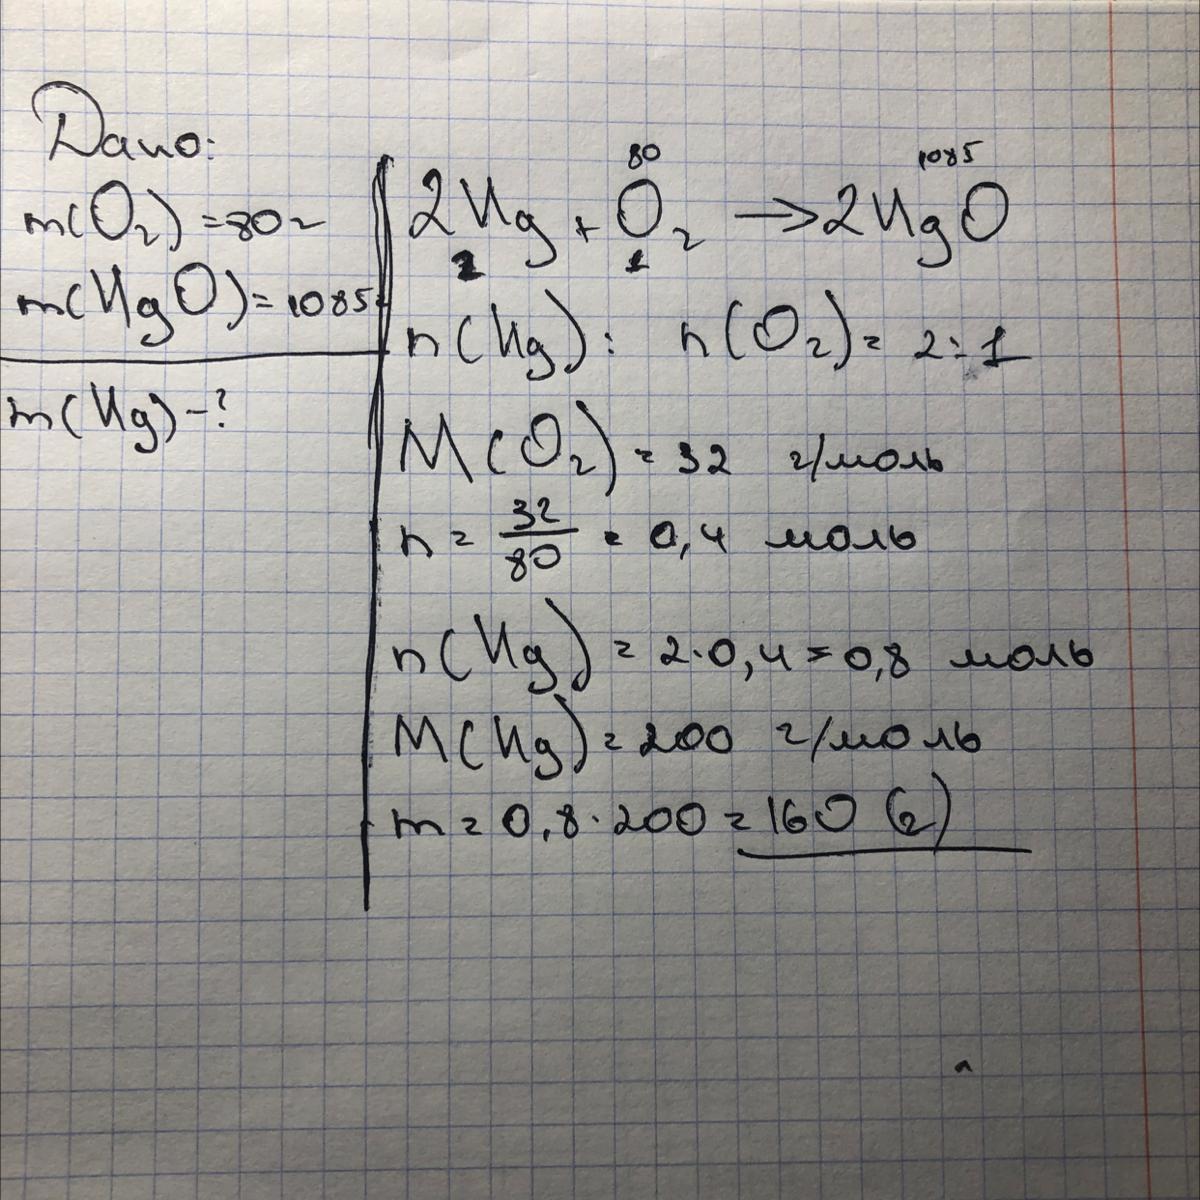 Дано:
m(O₂) = 80г
m(HgO) = 1085г
m(Hg) - ?
80 1085
2Hg + O₂ → 2HgO
2 1
n(Hg) : n(O₂) = 2:1
M(O₂) = 32 г/моль
n = 32/80 = 0,4 моль
n(Hg) = 2·0,4 = 0,8 моль
M(Hg) = 200 г/моль
m = 0,8·200 = 160 (г)